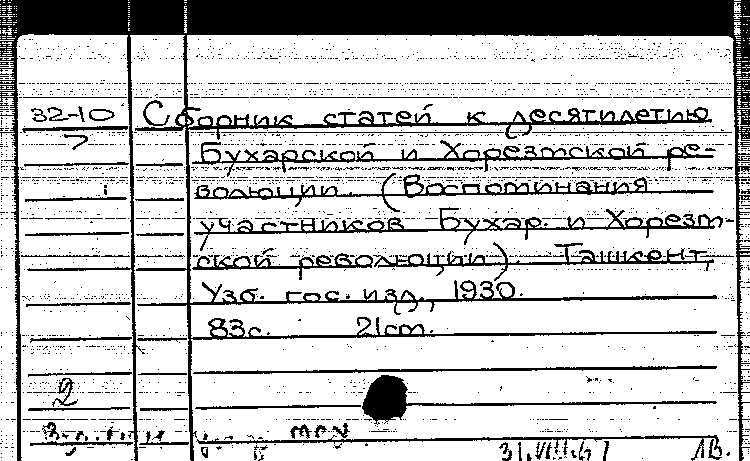 32-10 Сборник статей к десятилетию
7 Бухарской и Хорезмской ре-
волюции. (Воспоминания
участников Бухар. и Хорезм-
ской революции). Ташкент,
Узб. гос. изд., 1930.
83с. 21см.
2
31.VIII.67 ЛВ.